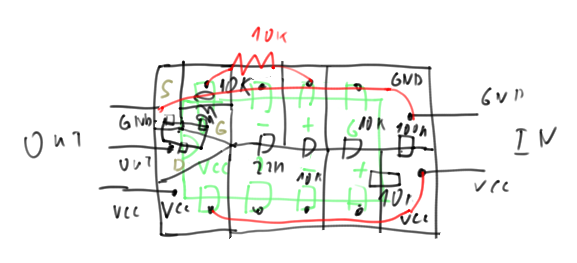 10K
S
10K
GND
GND
GND
G
+
G
10K
100n
OUT
IN
OUT
D
VCC
22n
10K
+
10µ
VCC
VCC
VCC
VCC